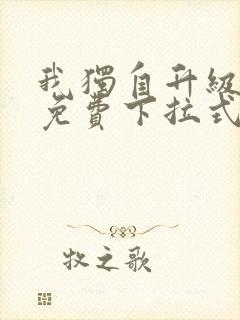 我獨自升級
免費下拉式
牧之歌